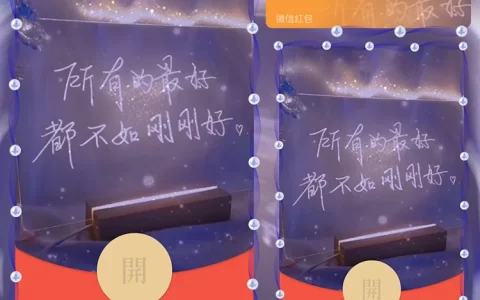 所有的最好
都不如刚刚好
開
微信红包
所有的最好
都不如刚刚好
開